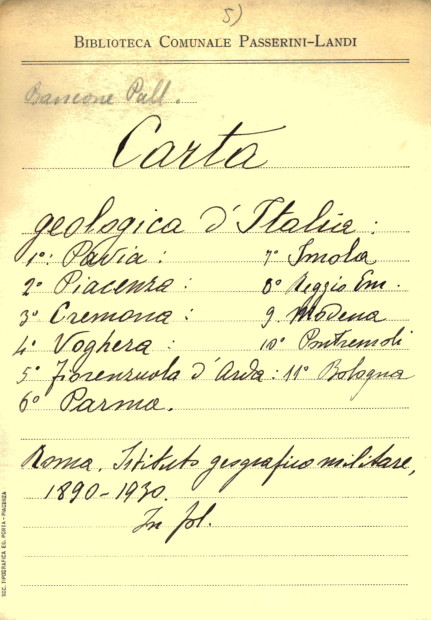 5)
BIBLIOTECA COMUNALE PASSERINI-LANDI
Bancone Pull.
Carta
geologica d'Italia:
1°: Pavia: 7° Imola
2° Piacenza: 8° Reggio Em.
3° Cremona: 9. Modena
4° Voghera: 10° Pontremoli
5° Fiorenzuola d'Arda: 11° Bologna
6° Parma.
Roma. Istituto geografico militare,
1890-1930.
In fol.
SOC. TIPOGRAFICA ED. PORTA - PIACENZA